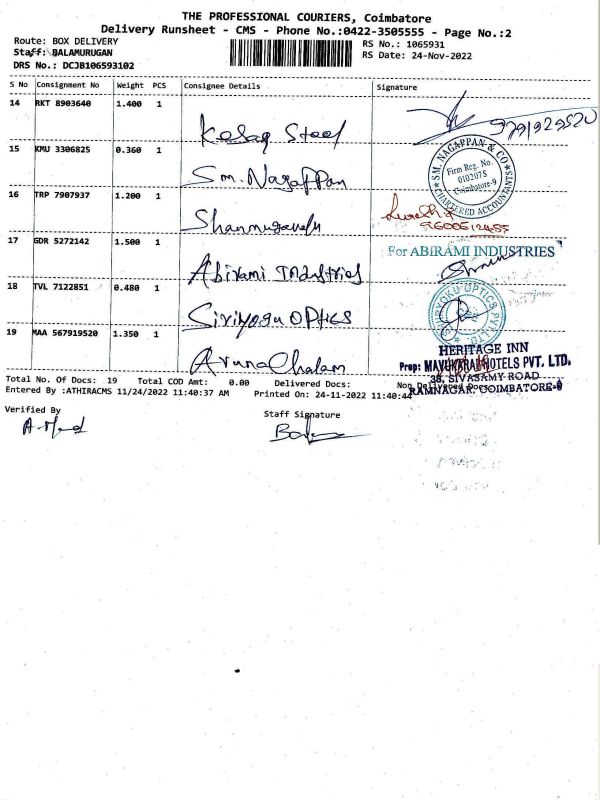 THE PROFESSIONAL COURIERS, Coimbatore
Delivery Runsheet - CMS - Phone No.:0422-3505555 - Page No.:2
Route: BOX DELIVERY
RS No.: 1065931
Staff: BALAMURUGAN
RS Date: 24-Nov-2022
DRS No.: DCJB106593102
S No Consignment No Weight PCS Consignee Details Signature
14 RKT 8903640 1.400 1
Steel
15 KMU 3306825 0.360 1
Sm. Nagappan
SM. NAGAPPAN & CO
Firm Reg. No.
010207S
Coimbatore-9
CHARTERED ACCOUNTANTS
16 TRP 7907937 1.200 1
Shanmugavelu
17 GDR 5272142 1.500 1
Abirami Industries
For ABIRAMI INDUSTRIES
18 TVL 7122851 0.480 1
Siriyogu OPtics
OPTICS PVT
19 MAA 567919520 1.350 1
ArunaChalam
HERITAGE INN
Prop: MAYURBHAJ HOTELS PVT. LTD.
38, SIVASAMY ROAD
RAMNAGAR, COIMBATORE-9
Total No. Of Docs: 19 Total COD Amt: 0.00 Delivered Docs: Non Delivered Docs:
Entered By :ATHIRACMS 11/24/2022 11:40:37 AM Printed On: 24-11-2022 11:40:44
Verified By
Staff Signature